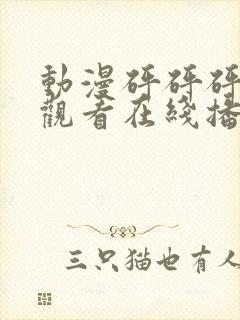 動漫砰砰砰
觀看在綫播
三只猫也有人